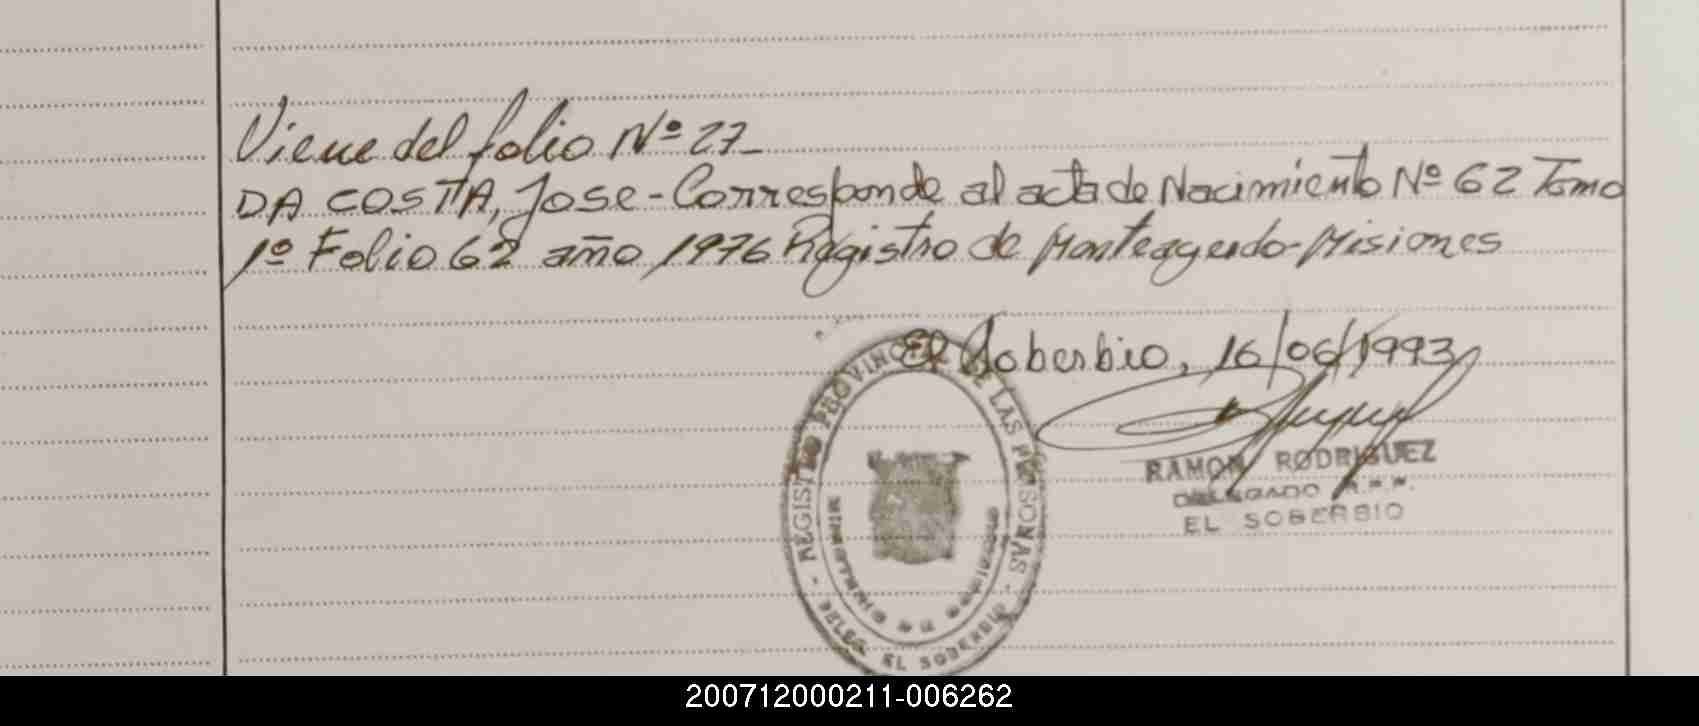 Viene del folio Nº 27-
DA COSTA, Jose - Corresponde al acta de Nacimiento Nº 62 Tomo
1º Folio 62 año 1976 Registro de Monteagudo-Misiones
El Soberbio, 16/06/1993
REGISTRO PROVINCIAL DE LAS PERSONAS
MINISTERIO DE GOBIERNO
DELEG. EL SOBERBIO
RAMON RODRIGUEZ
DELEGADO R.P.P.
EL SOBERBIO
200712000211-006262